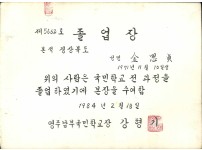 제5662호 졸업장
본적 경상북도
성명 金恩貞
1971년 11월 10일생
위의 사람은 국민학교 전 과정을
졸업하였기에 본장을 수여함
1984년 2월 18일
영주남부국민학교장 강형